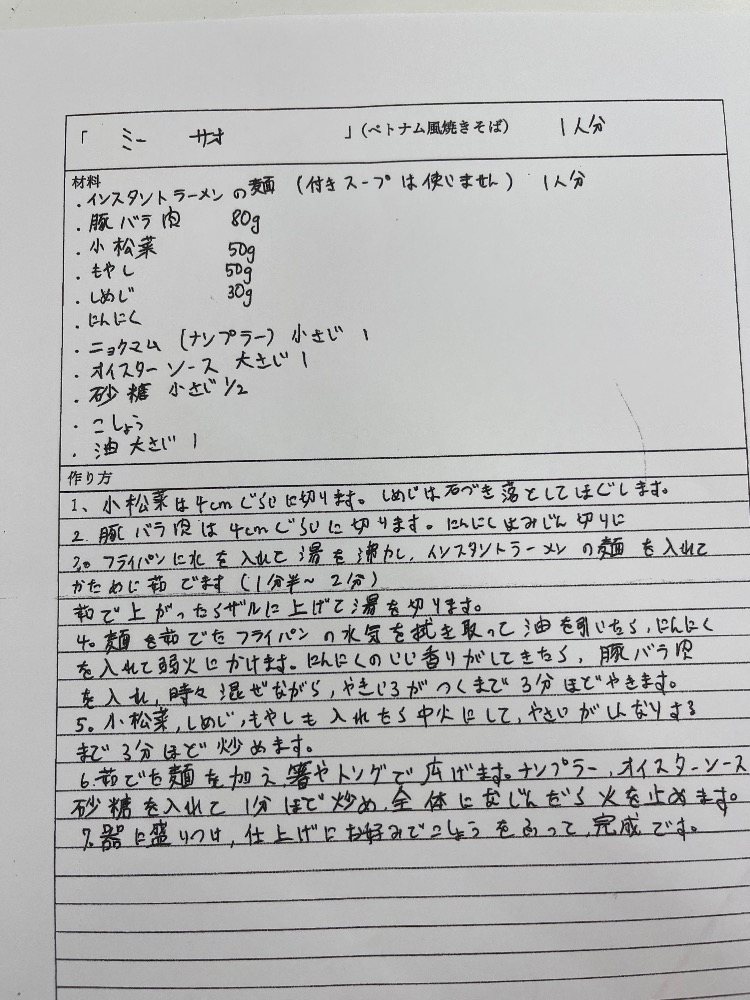 「 ミー サオ 」(ベトナム風焼きそば) 1人分
材料
・インスタントラーメンの麺 (付きスープは使いません) 1人分
・豚バラ肉 80g
・小松菜 50g
・もやし 50g
・しめじ 30g
・にんにく
・ニョクマム (ナンプラー) 小さじ 1
・オイスターソース 大さじ 1
・砂糖 小さじ 1/2
・こしょう
・油 大さじ 1
作り方
1、小松菜は4cmぐらいに切ります。しめじは石づき落としてほぐします。
2. 豚バラ肉は4cmぐらいに切ります。にんにくはみじん切りに
3。フライパンに水を入れて湯を沸かし、インスタントラーメンの麺を入れて
かために茹でます(1分半~2分)
茹で上がったらザルに上げて湯を切ります。
4。麺を茹でたフライパンの水気を拭き取って油を引いたら、にんにく
を入れて弱火にかけます。にんにくのいい香りがしてきたら、豚バラ肉
を入れ、時々混ぜながら、やきいろがつくまで3分ほどやきます。
5。小松菜、しめじ、もやしも入れたら中火にして、やさいがしんなりする
まで3分ほど炒めます。
6.茹でた麺を加え、箸やトングで広げます。ナンプラー、オイスターソース
砂糖を入れて1分ほど炒め、全体になじんだら火を止めます。
7.器に盛りつけ、仕上げにお好みでこしょうをふって、完成です。